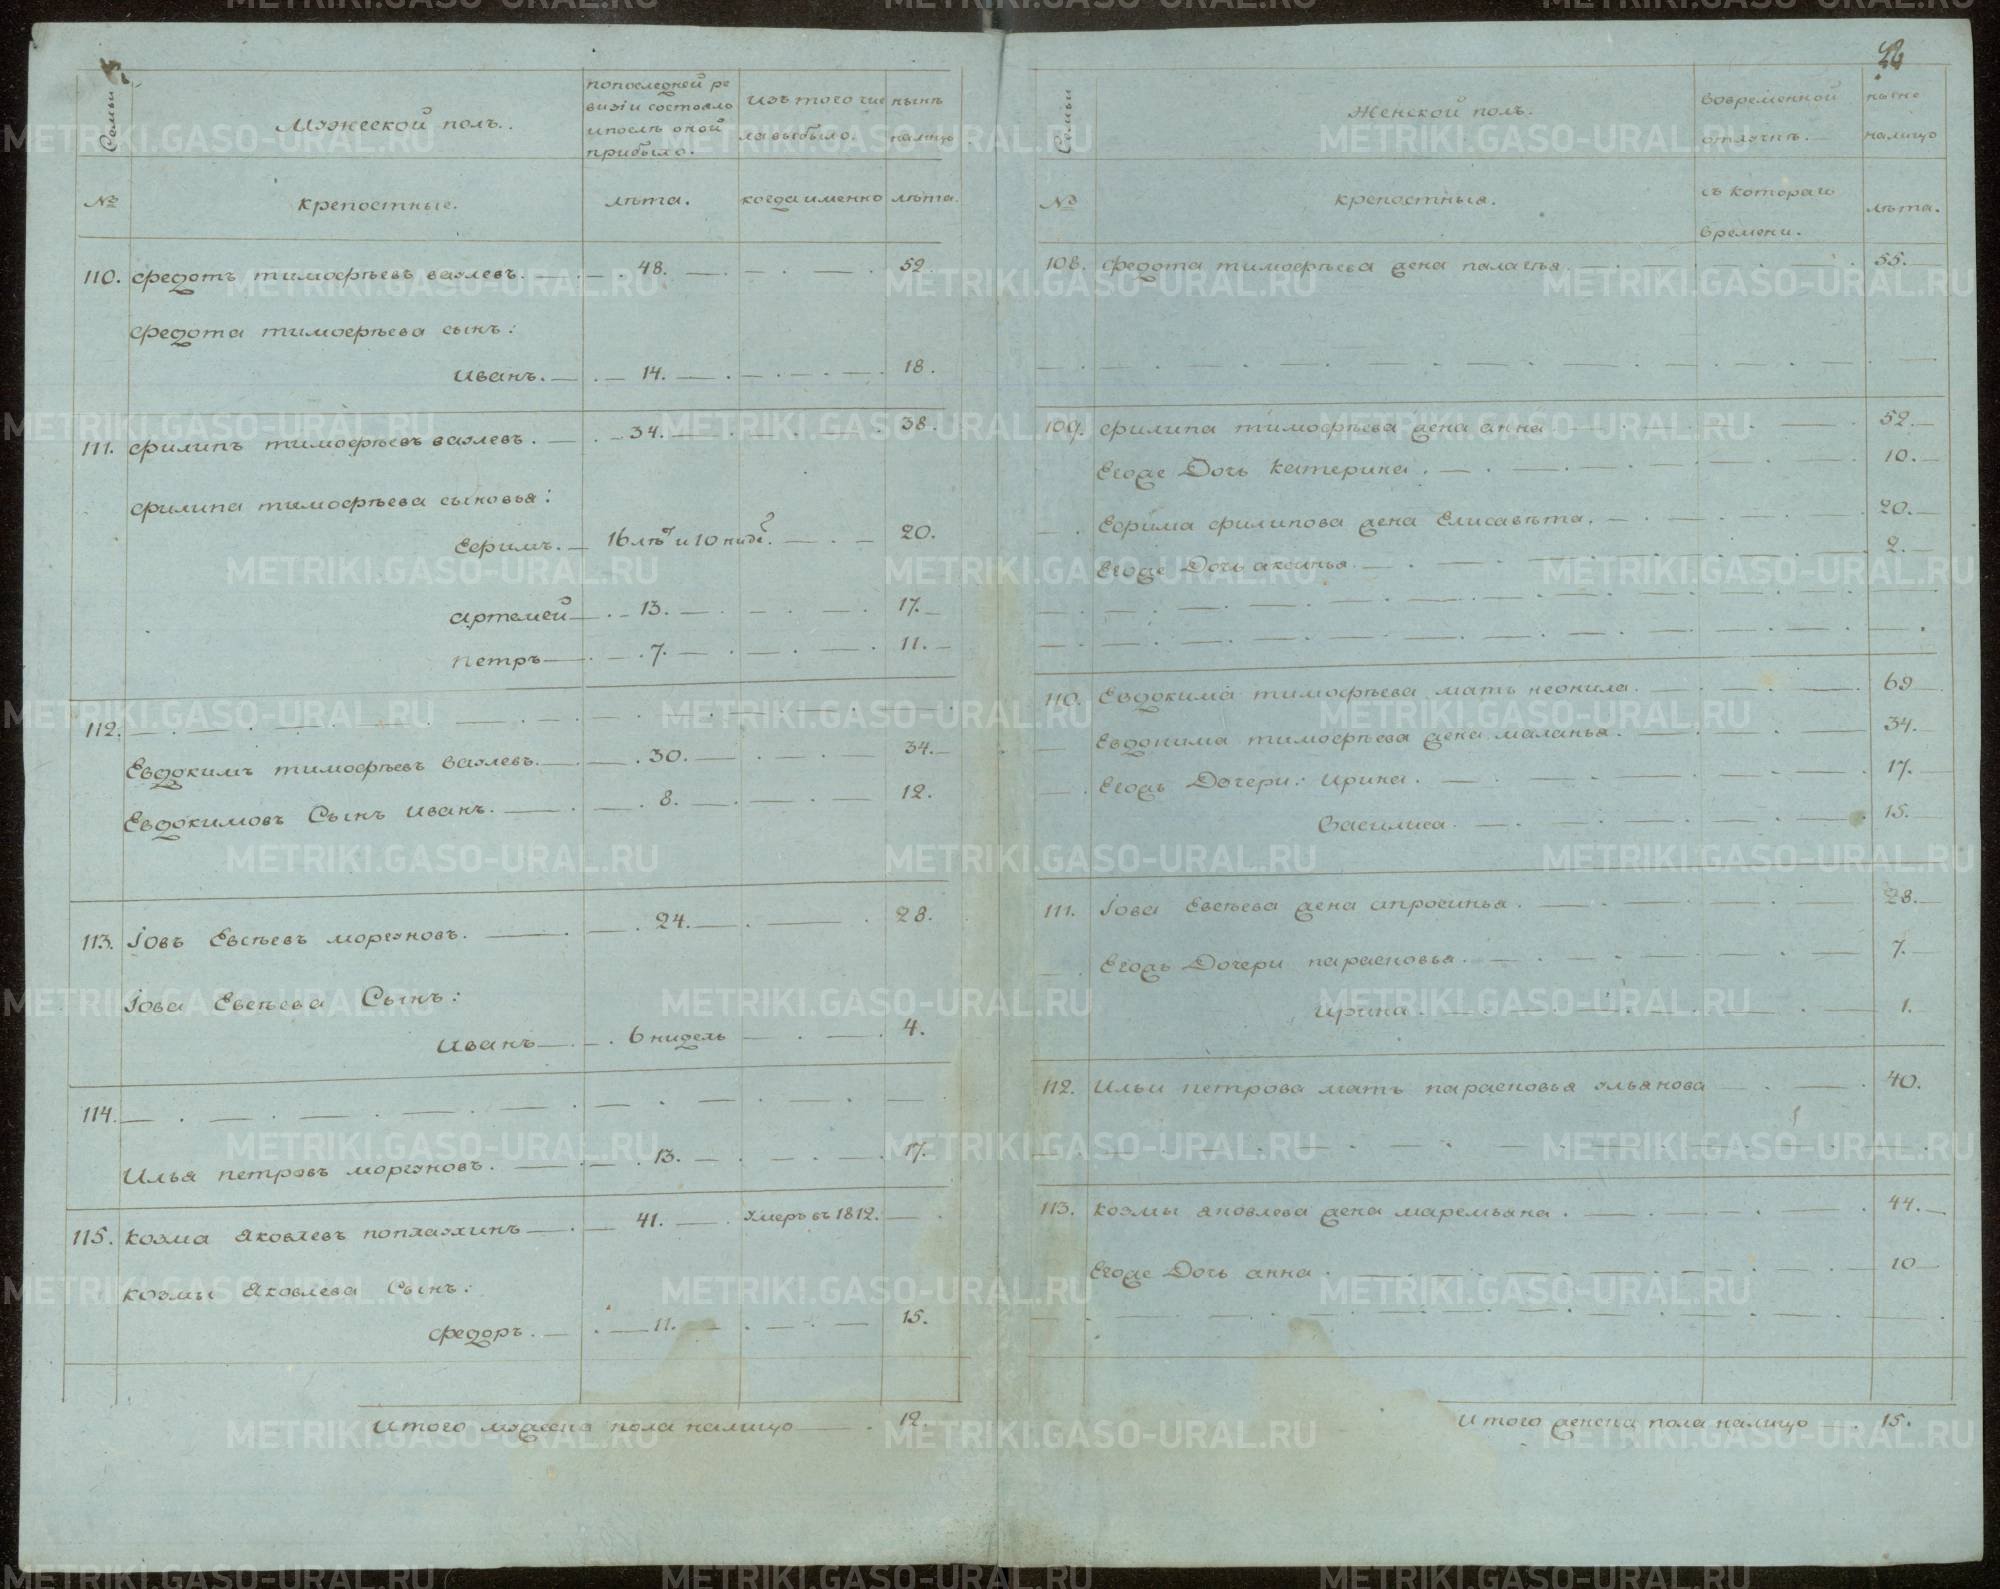 Семьи
Мужеской полъ.
попоследней ре
визiи состояло
ипослѣ оной
прибыло.
изъ того чис
ла выбыло.
нынѣ
налицо
№
крепостные.
лѣта.
когда именно
лѣта.
110. Федотъ тимофѣевъ ваулевъ. 48. 52.
Федота тимофѣева сынъ:
иванъ. 14. 18.
111. Филипъ тимофѣевъ ваулевъ. 34. 38.
Филипа тимофѣева сыновья:
Ефимъ. 16 лѣт и 10 нидѣ. 20.
артемей 13. 17.
петръ 7. 11.
112.
Евдокимъ тимофѣевъ ваулевъ. 30. 34.
Евдокимовъ Сынъ иванъ. 8. 12.
113. Iовъ Евсѣевъ моргуновъ. 24. 28.
Iова Евсѣева Сынъ:
иванъ 6 нидель 4.
114.
Илья петровъ моргуновъ. 13. 17.
115. козма яковлевъ поплаулинъ 41. умеръ въ 1812.
козмы яковлева Сынъ:
федоръ. 11. 15.
Итого мужеска пола налицо 12.
Семьи
Женской полъ.
вовременной
отлучкѣ.
ныне
налицо
№
крепостныя.
съ котораго
времени.
лѣта.
108. Федота тимофѣева жена палагѣя. 55.
109. филипа тимофѣева жена анна 52.
Егоже Дочь катерина. 10.
Ефима филипова жена Елисавѣта. 20.
Егоже Дочь аксинья. 2.
110. Евдокима тимофѣева мать неонила. 69
Евдокима тимофѣева жена маланья. 34.
Егожъ Дочери: ирина. 17.
Василиса. 15.
111. Iова Евсѣева жена апросинья. 28.
Егожъ Дочери парасковья. 7.
ирина. 1.
112. Ильи петрова мать парасковья ульянова 40.
113. козмы яковлева жена маремьяна. 44.
Егоже Дочь анна. 10
Итого женска пола налицо 15.
METRIKI.GASO-URAL.RU